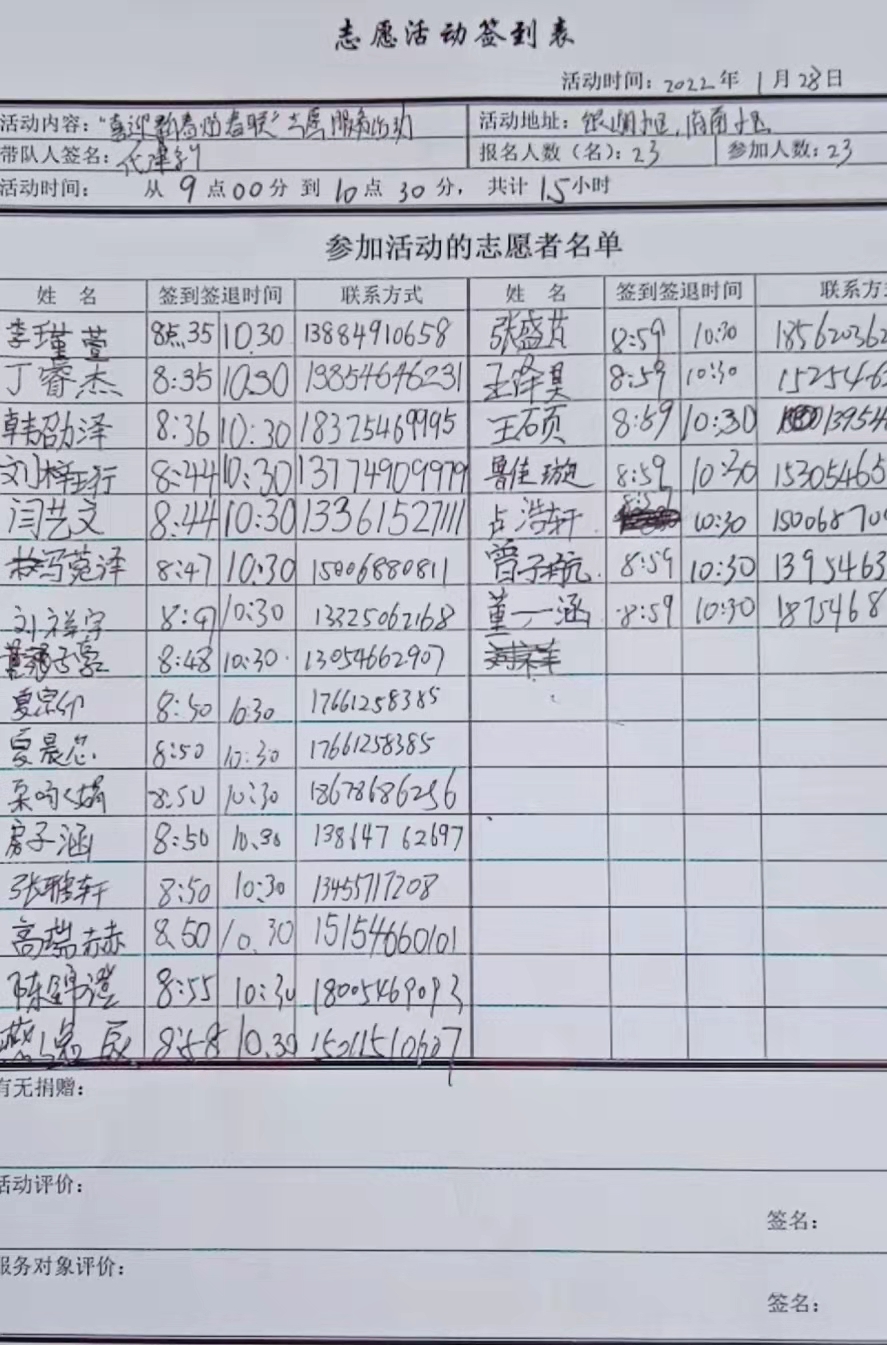 志愿活动签到表
活动时间：2022年1月28日
活动内容："喜迎新春 送春联"志愿服务活动 活动地址：
带队人签名： 报名人数（名）：23 参加人数：23
活动时间： 从9点00分到10点30分， 共计1.5小时
参加活动的志愿者名单
姓 名 签到签退时间 联系方式 姓 名 签到签退时间 联系方
李瑾萱 8点35 10.30 13884910658 张盛 8:59 10:30 18562036
丁睿杰 8:35 10:30 13854646231 王泽昊 8:59 10:30 152546
韩劭泽 8:36 10:30 18325469995 王硕 8:59 10:30 13954
刘梓珩 8:44 10:30 13774909979 鲁佳璇 8:59 10:30 15305465
闫艺文 8:44 10:30 13361527111 占浩轩 8:59 10:30 15006870
冯菀泽 8:47 10:30 15006880811 曾子航 8:59 10:30 1395463
刘祥宇 8:47 10:30 13325062168 董一涵 8:59 10:30 1875468
8:48 10:30 13054662907
夏 8:50 10:30 17661258385
夏晨芯 8:50 10:30 17661258385
8:50 10:30 18678686256
房子涵 8:50 10.30 13864762697
张 轩 8:50 10:30 13455717208
高瑞赫 8.50 10.30 15154660101
陈锦澄 8:55 10:30 18005469093
8:58 10.30
有无捐赠：
活动评价：
签名：
服务对象评价：
签名：